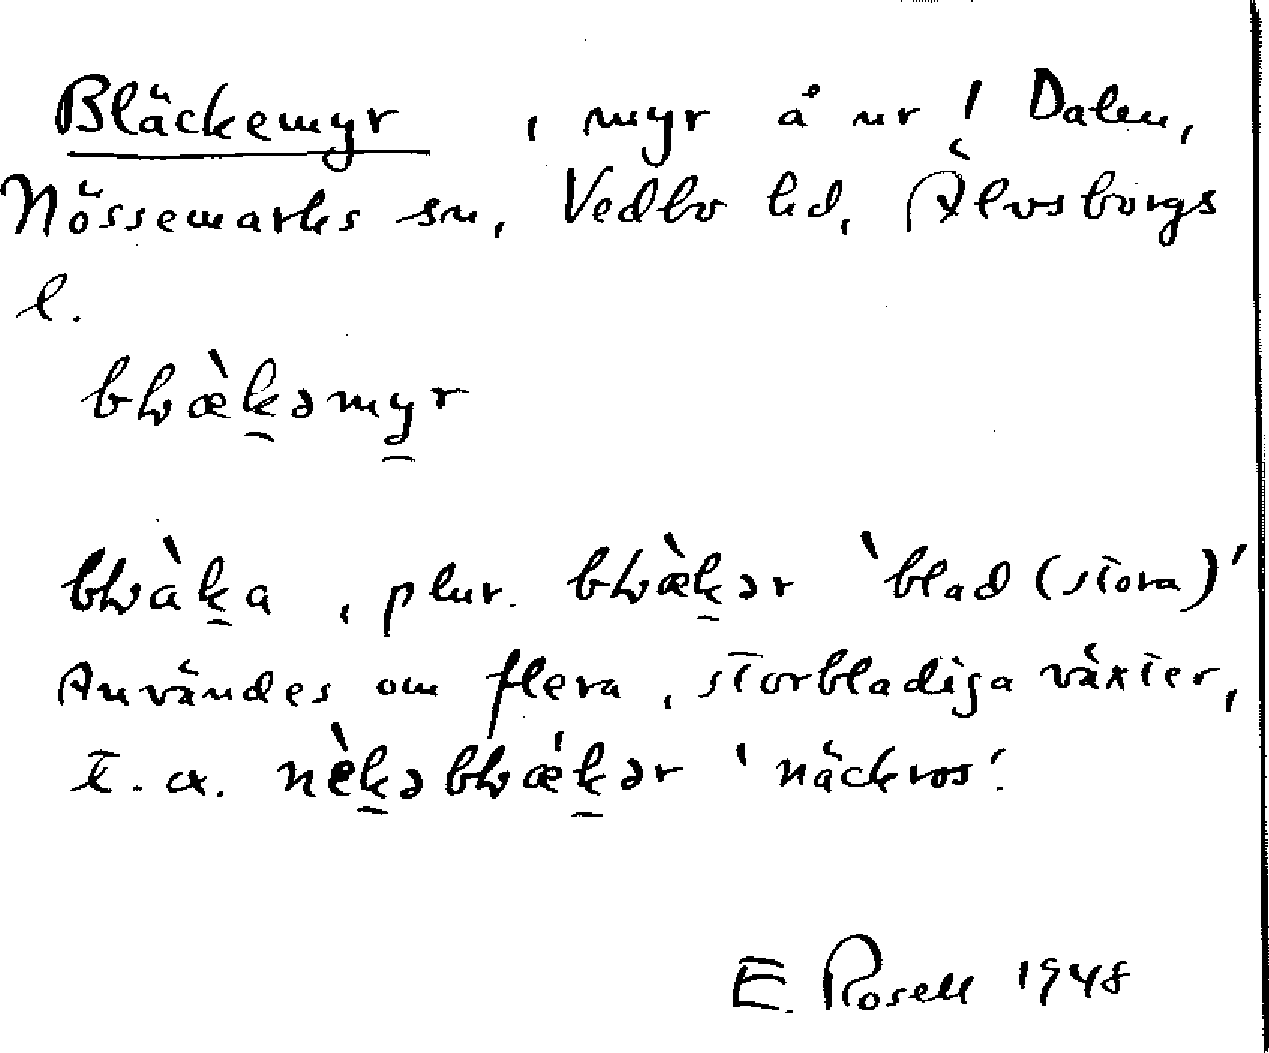 Bläckemyr, myr å nr 1 Dalen,
Nössemarks sn, Vedbo hd, Älvsborgs
l.
bɫæ̀k̠əmy̠r
bɫàk̠a, plur. bɫæ̀k̠ər 'blad (stora)'
Användes om flera, storbladiga växter,
t. ex. nèk̠əbɫǽk̠ər 'näckros'.
E. Rosell 1948